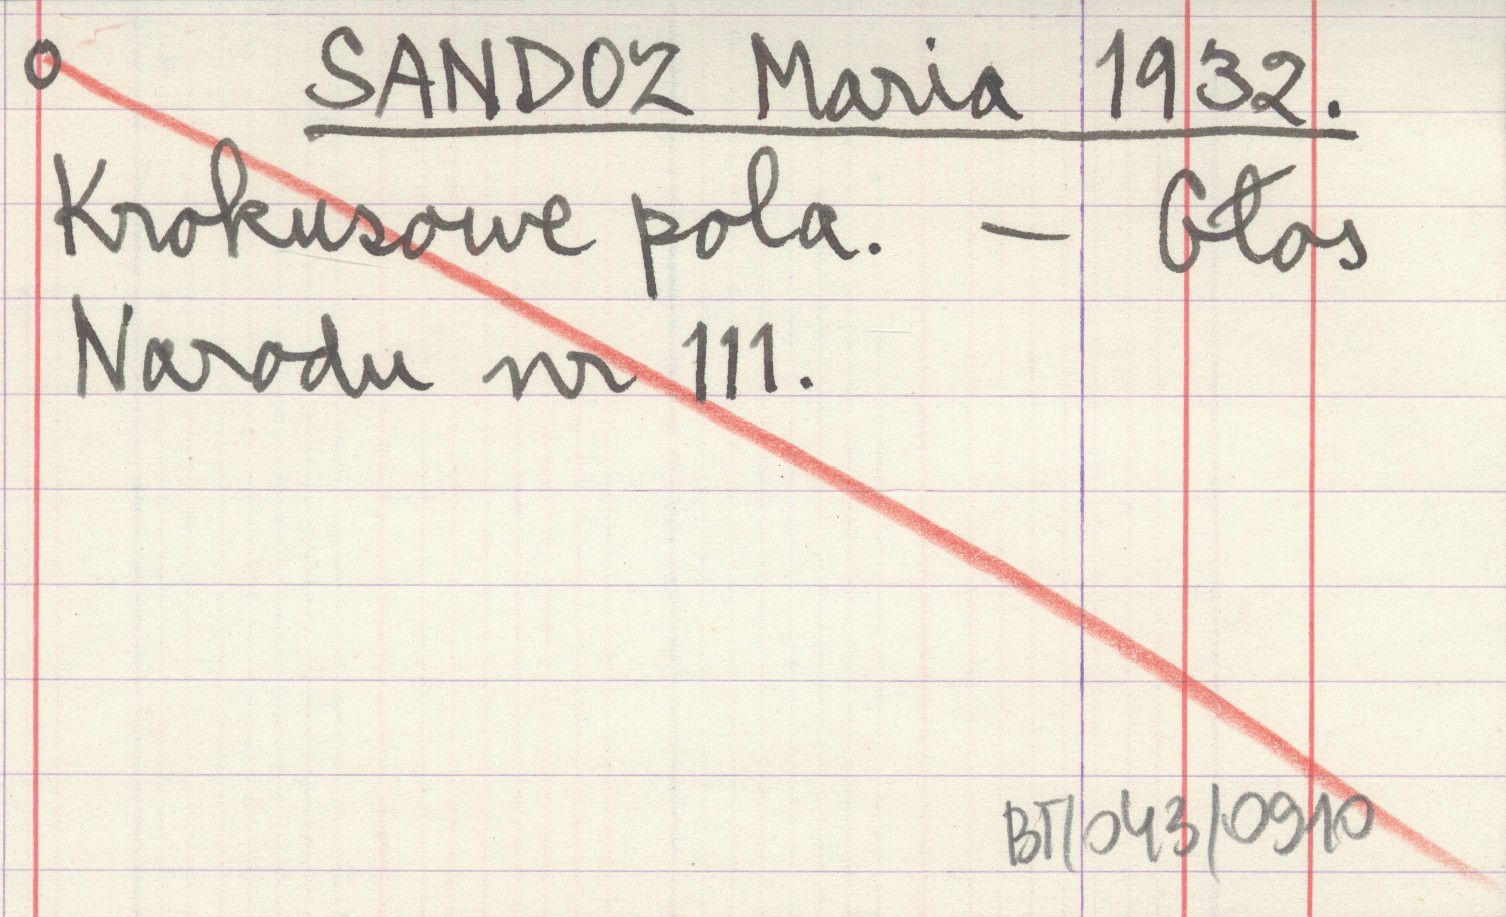 O SANDOZ Maria 1932.
Krokusowe pola. — Głos
Narodu nr 111.
BT/043/0910